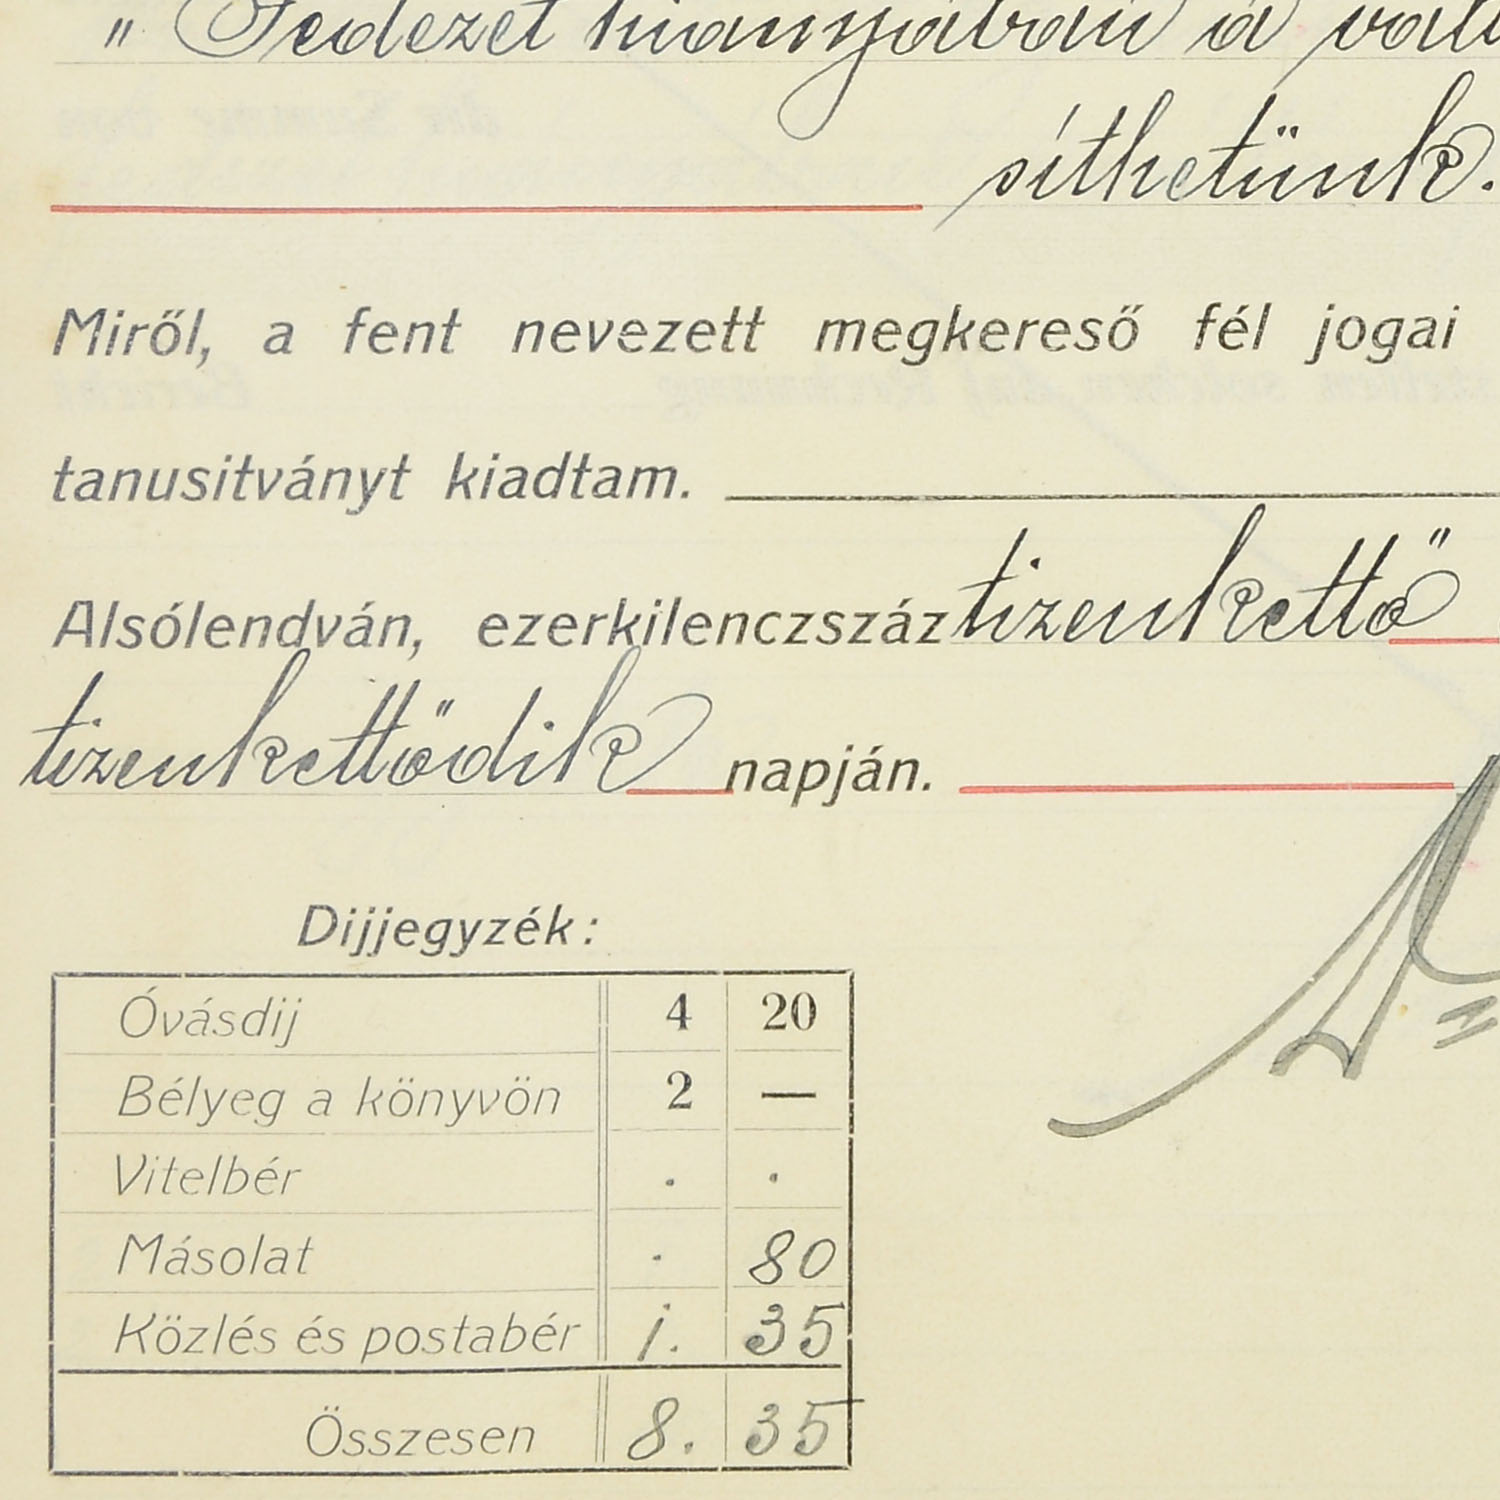 " Fedezet hiányában a vált
síthetünk.
Miről, a fent nevezett megkereső fél jogai
tanusitványt kiadtam.
Alsólendván, ezerkilenczszáz tizenkettő
tizenkettődik napján.
Dijjegyzék:
Óvásdij 4 20
Bélyeg a könyvön 2 —
Vitelbér . .
Másolat . 80
Közlés és postabér 1. 35
Összesen 8. 35